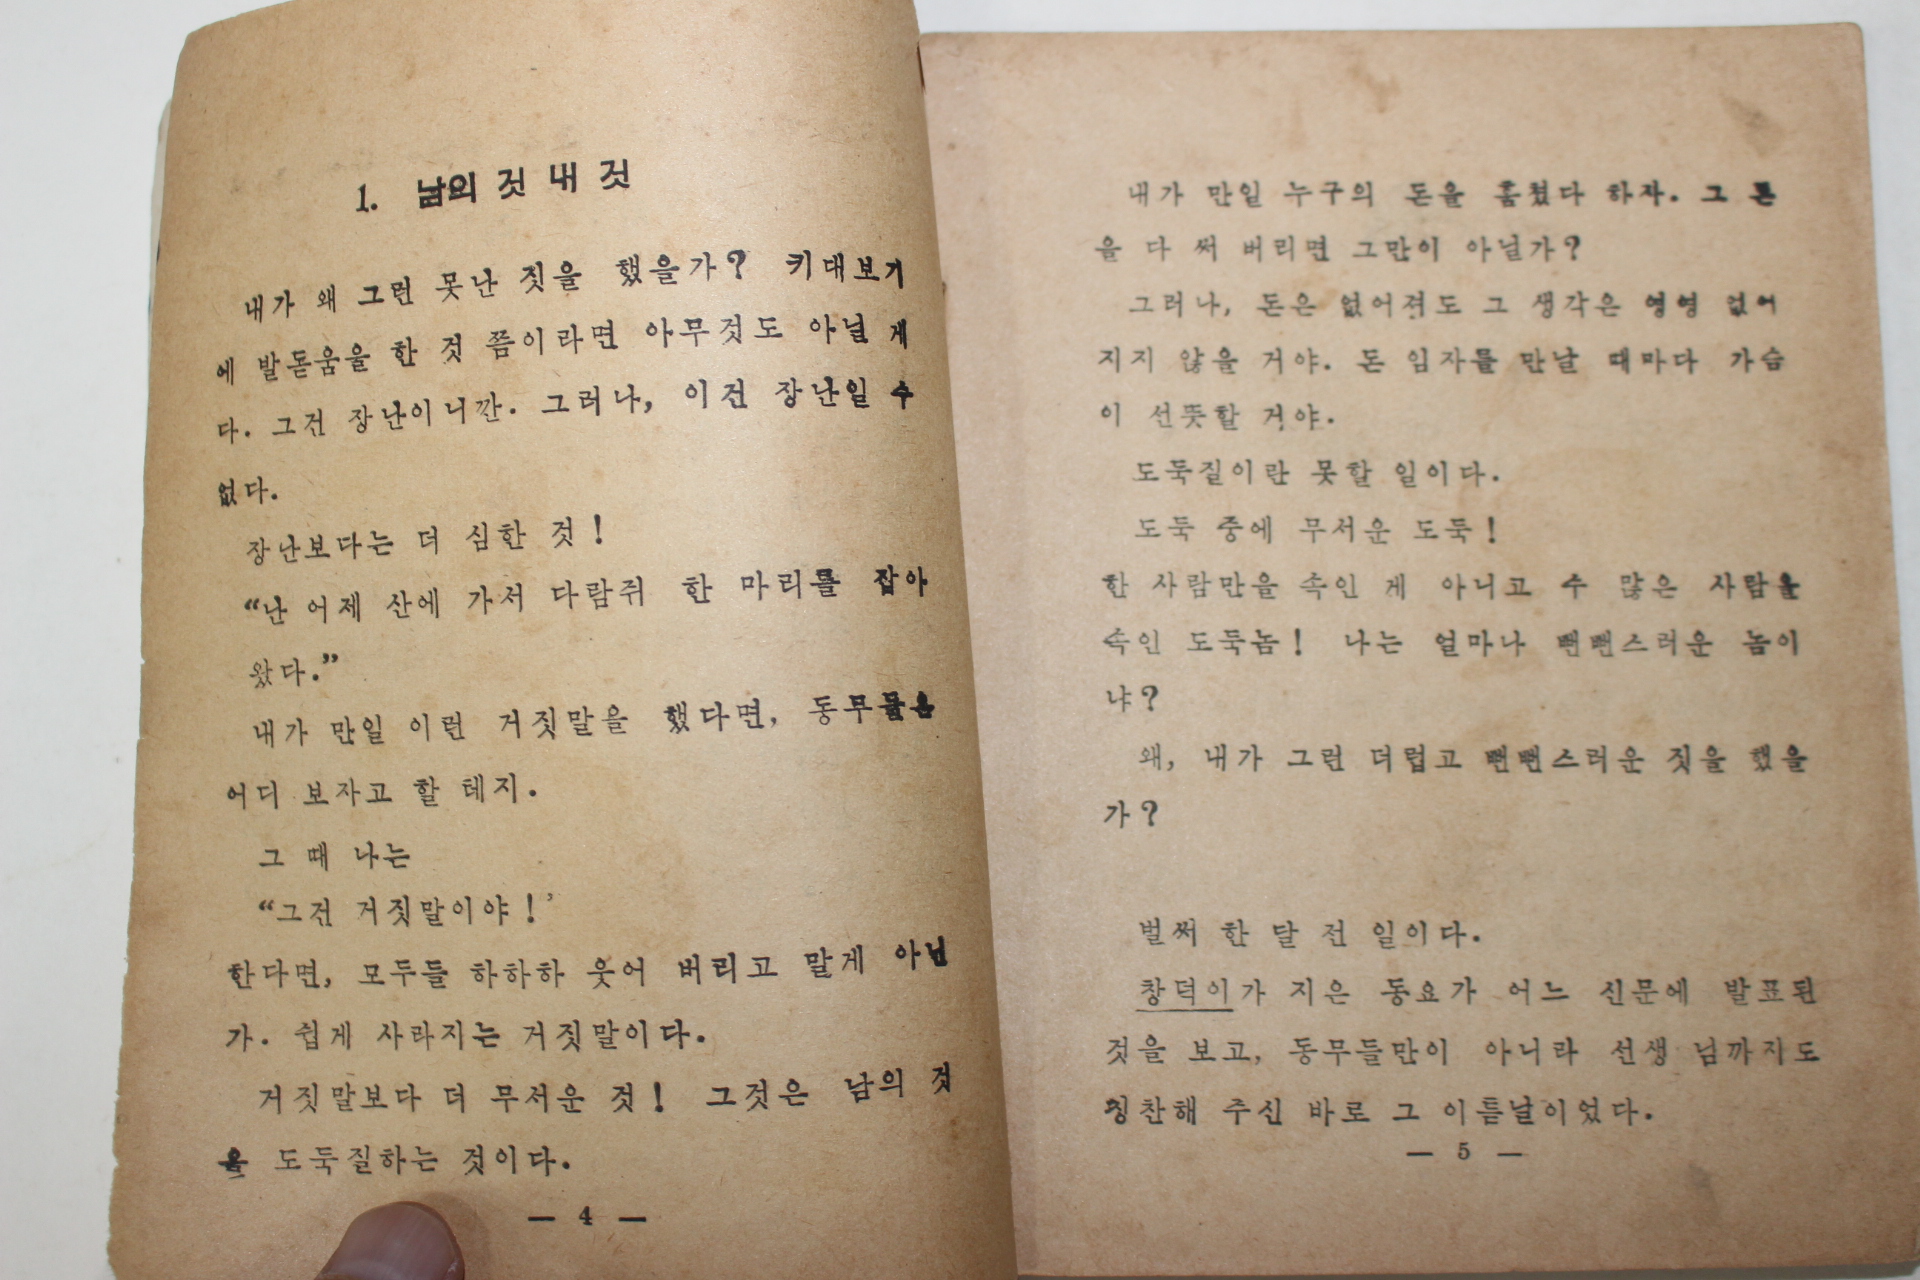 1. 남의 것 내 것
내가 왜 그런 못난 짓을 했을가? 키대보기
에 발돋움을 한 것 쯤이라면 아무것도 아닐 게
다. 그건 장난이니깐. 그러나, 이건 장난일 수
없다.
장난보다는 더 심한 것!
“난 어제 산에 가서 다람쥐 한 마리를 잡아
왔다.”
내가 만일 이런 거짓말을 했다면, 동무들은
어디 보자고 할 테지.
그 때 나는
“그건 거짓말이야!’
한다면, 모두들 하하하 웃어 버리고 말게 아닌
가. 쉽게 사라지는 거짓말이다.
거짓말보다 더 무서운 것! 그것은 남의 것
을 도둑질하는 것이다.
— 4 —
내가 만일 누구의 돈을 훔쳤다 하자. 그 돈
을 다 써 버리면 그만이 아닐가?
그러나, 돈은 없어져도 그 생각은 영영 없어
지지 않을 거야. 돈 임자를 만날 때마다 가슴
이 선뜻할 거야.
도둑질이란 못할 일이다.
도둑 중에 무서운 도둑!
한 사람만을 속인 게 아니고 수 많은 사람을
속인 도둑놈! 나는 얼마나 뻔뻔스러운 놈이
냐?
왜, 내가 그런 더럽고 뻔뻔스러운 짓을 했을
가?
벌써 한 달 전 일이다.
창덕이가 지은 동요가 어느 신문에 발표된
것을 보고, 동무들만이 아니라 선생 님까지도
칭찬해 주신 바로 그 이튿날이었다.
— 5 —